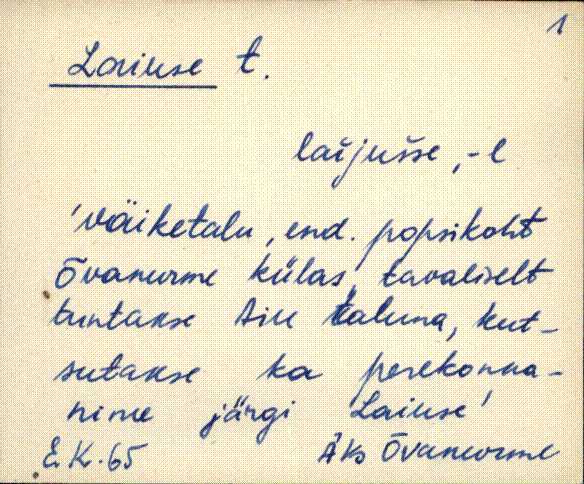 1
Laiuse t.
laijusse, -l
'väiketalu, end. popsikoht
Õvanurme külas, tavaliselt
tuntakse Aiu taluna, kut-
sutakse ka perekonna-
nime järgi Laiuse'
E. Kr. 65 Äks Õvanurme